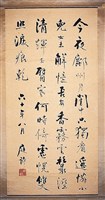 今夜鄜州月閨中只獨看遙憐小
兒女未解憶長安香霧雲鬟濕
清輝玉臂寒何時倚虛幌雙
照淚痕乾 六十年八月